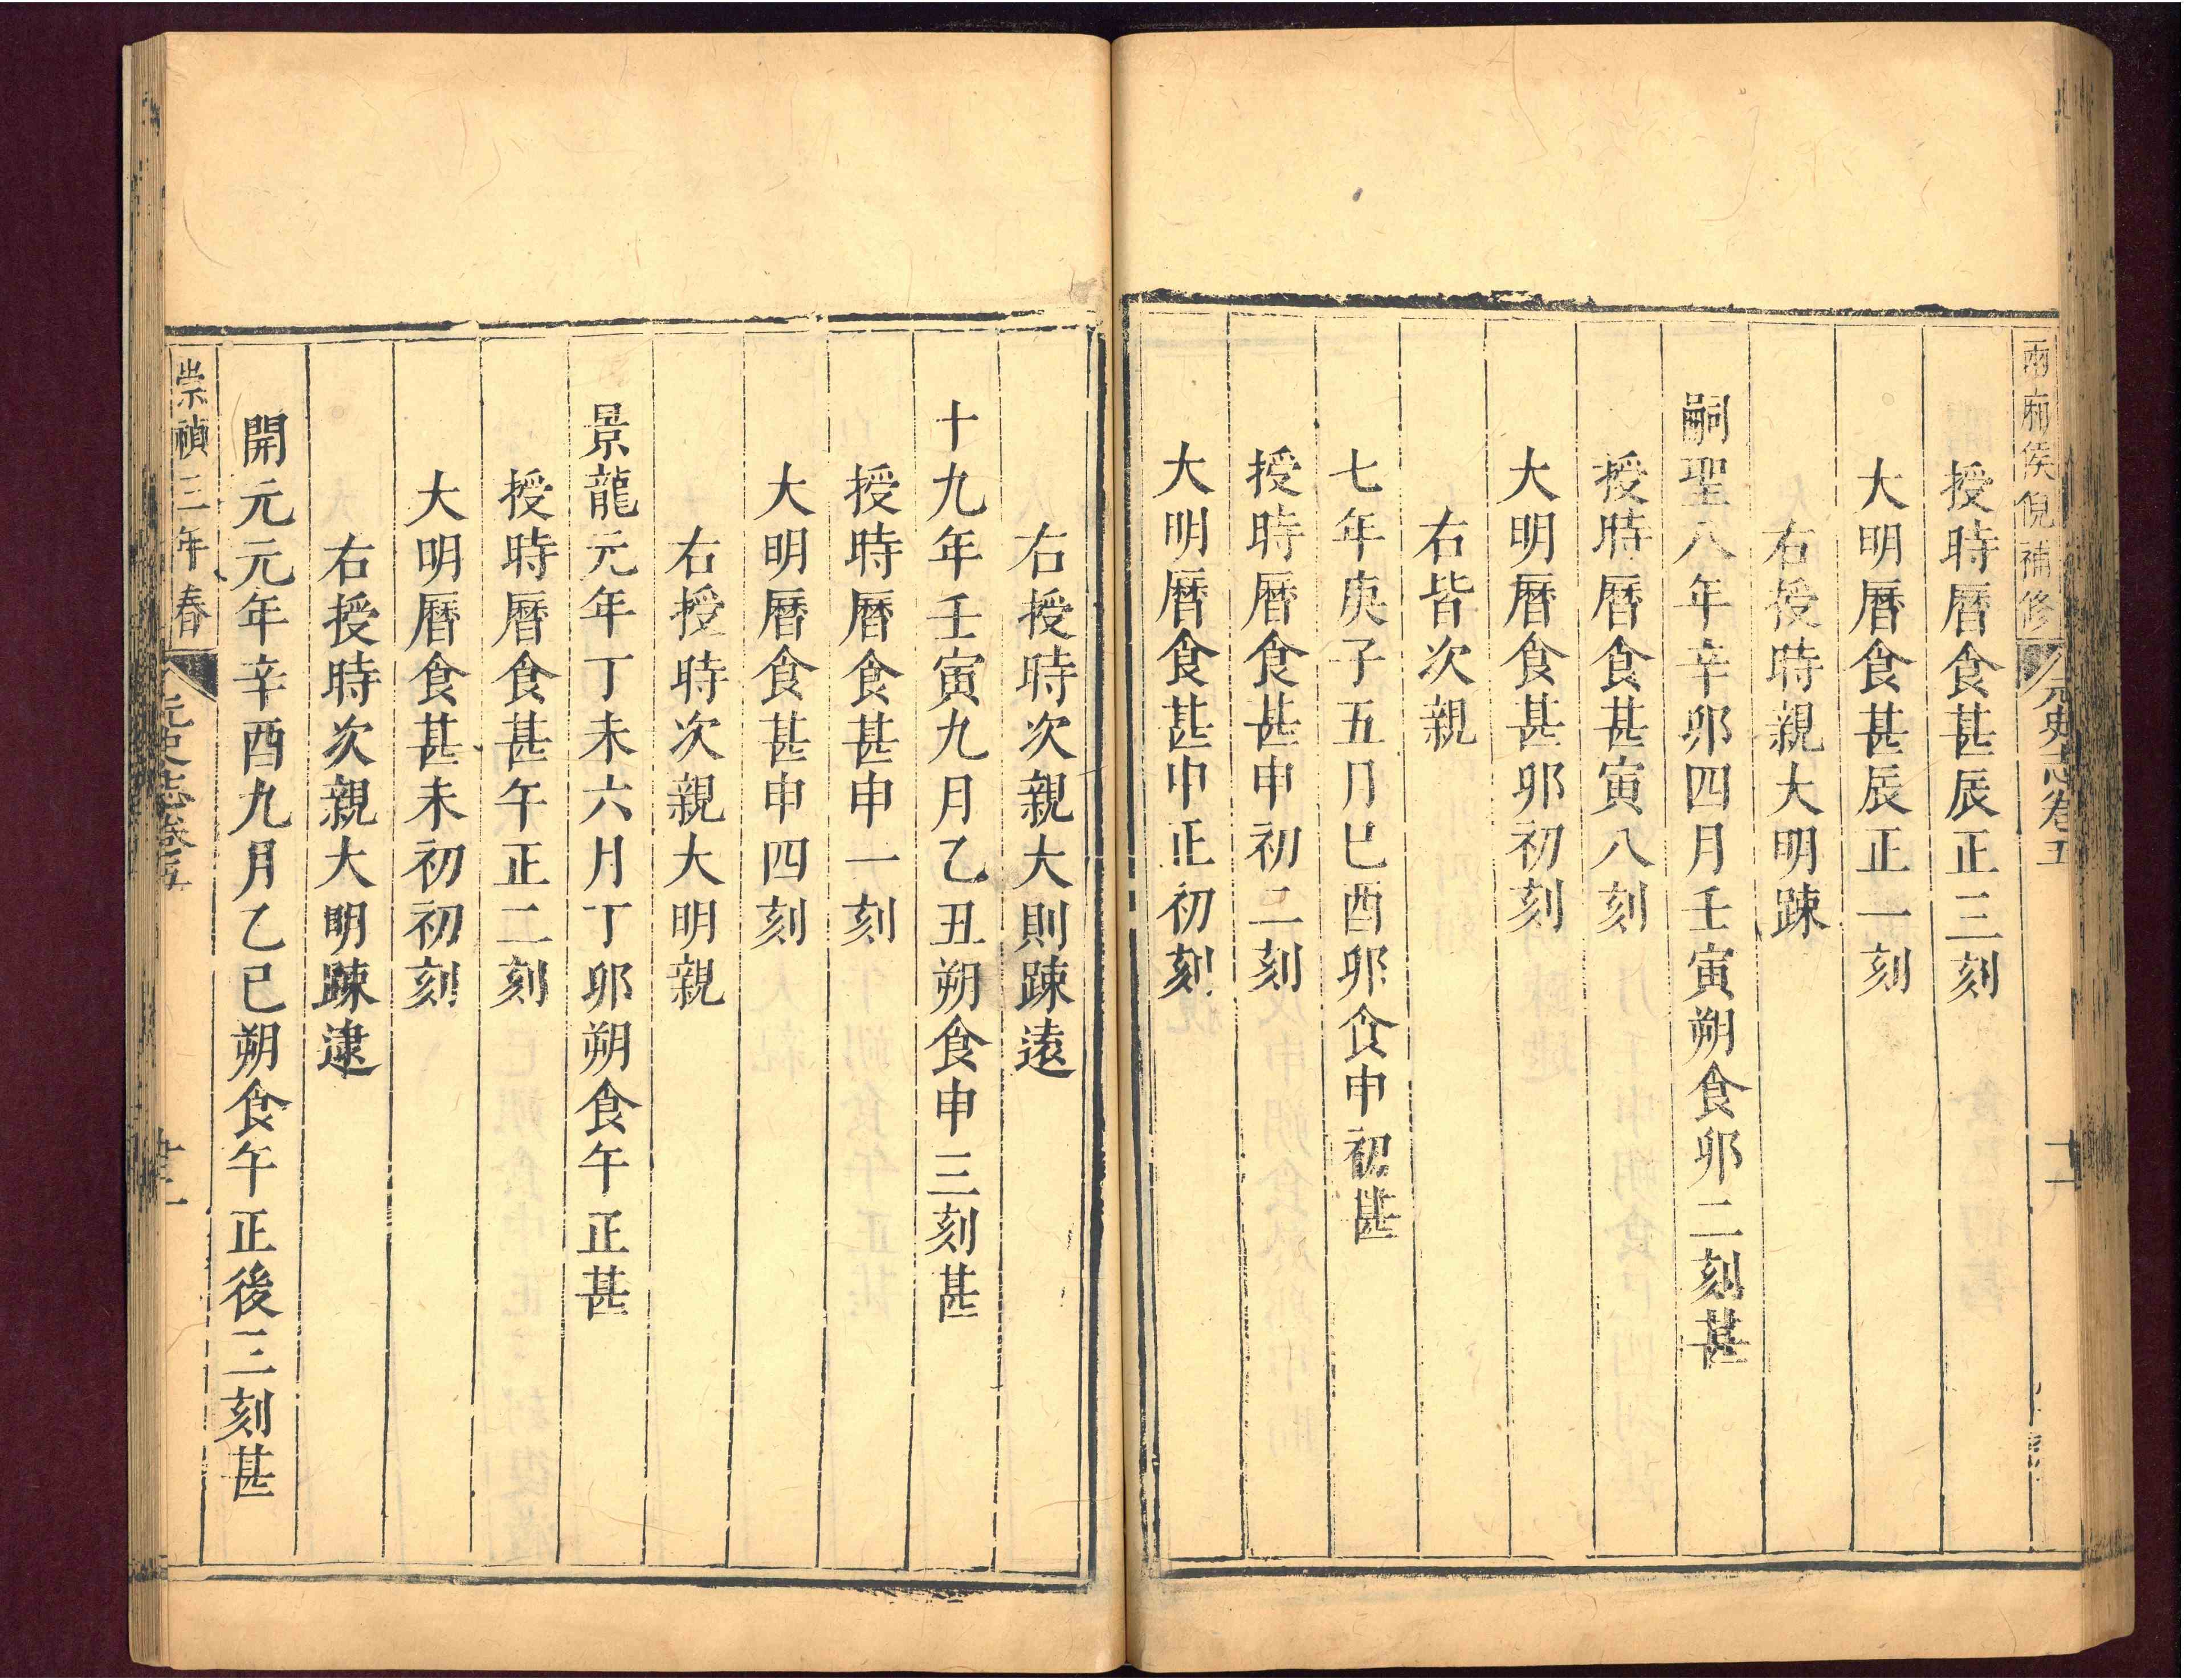 兩廂侯倪補修
元史志卷五
授時曆食甚辰正三刻
大明曆食甚辰正一刻
右授時親大明踈
嗣聖八年辛卯四月壬寅朔食卯二刻甚
授時曆食甚寅八刻
大明曆食甚卯初刻
右皆次親
七年庚子五月巳酉卯食申初甚
授時曆食甚申初二刻
大明曆食甚申正初刻
右授時次親大則踈遠
十九年壬寅九月乙丑朔食申三刻甚
授時曆食甚申一刻
大明曆食甚申四刻
右授時次親大明親
景龍元年丁未六月丁卯朔食午正甚
授時曆食甚午正二刻
大明曆食甚未初初刻
右授時次親大明踈逮
開元元年辛酉九月乙巳朔食午正後三刻甚
崇禎三年春
元史志卷五